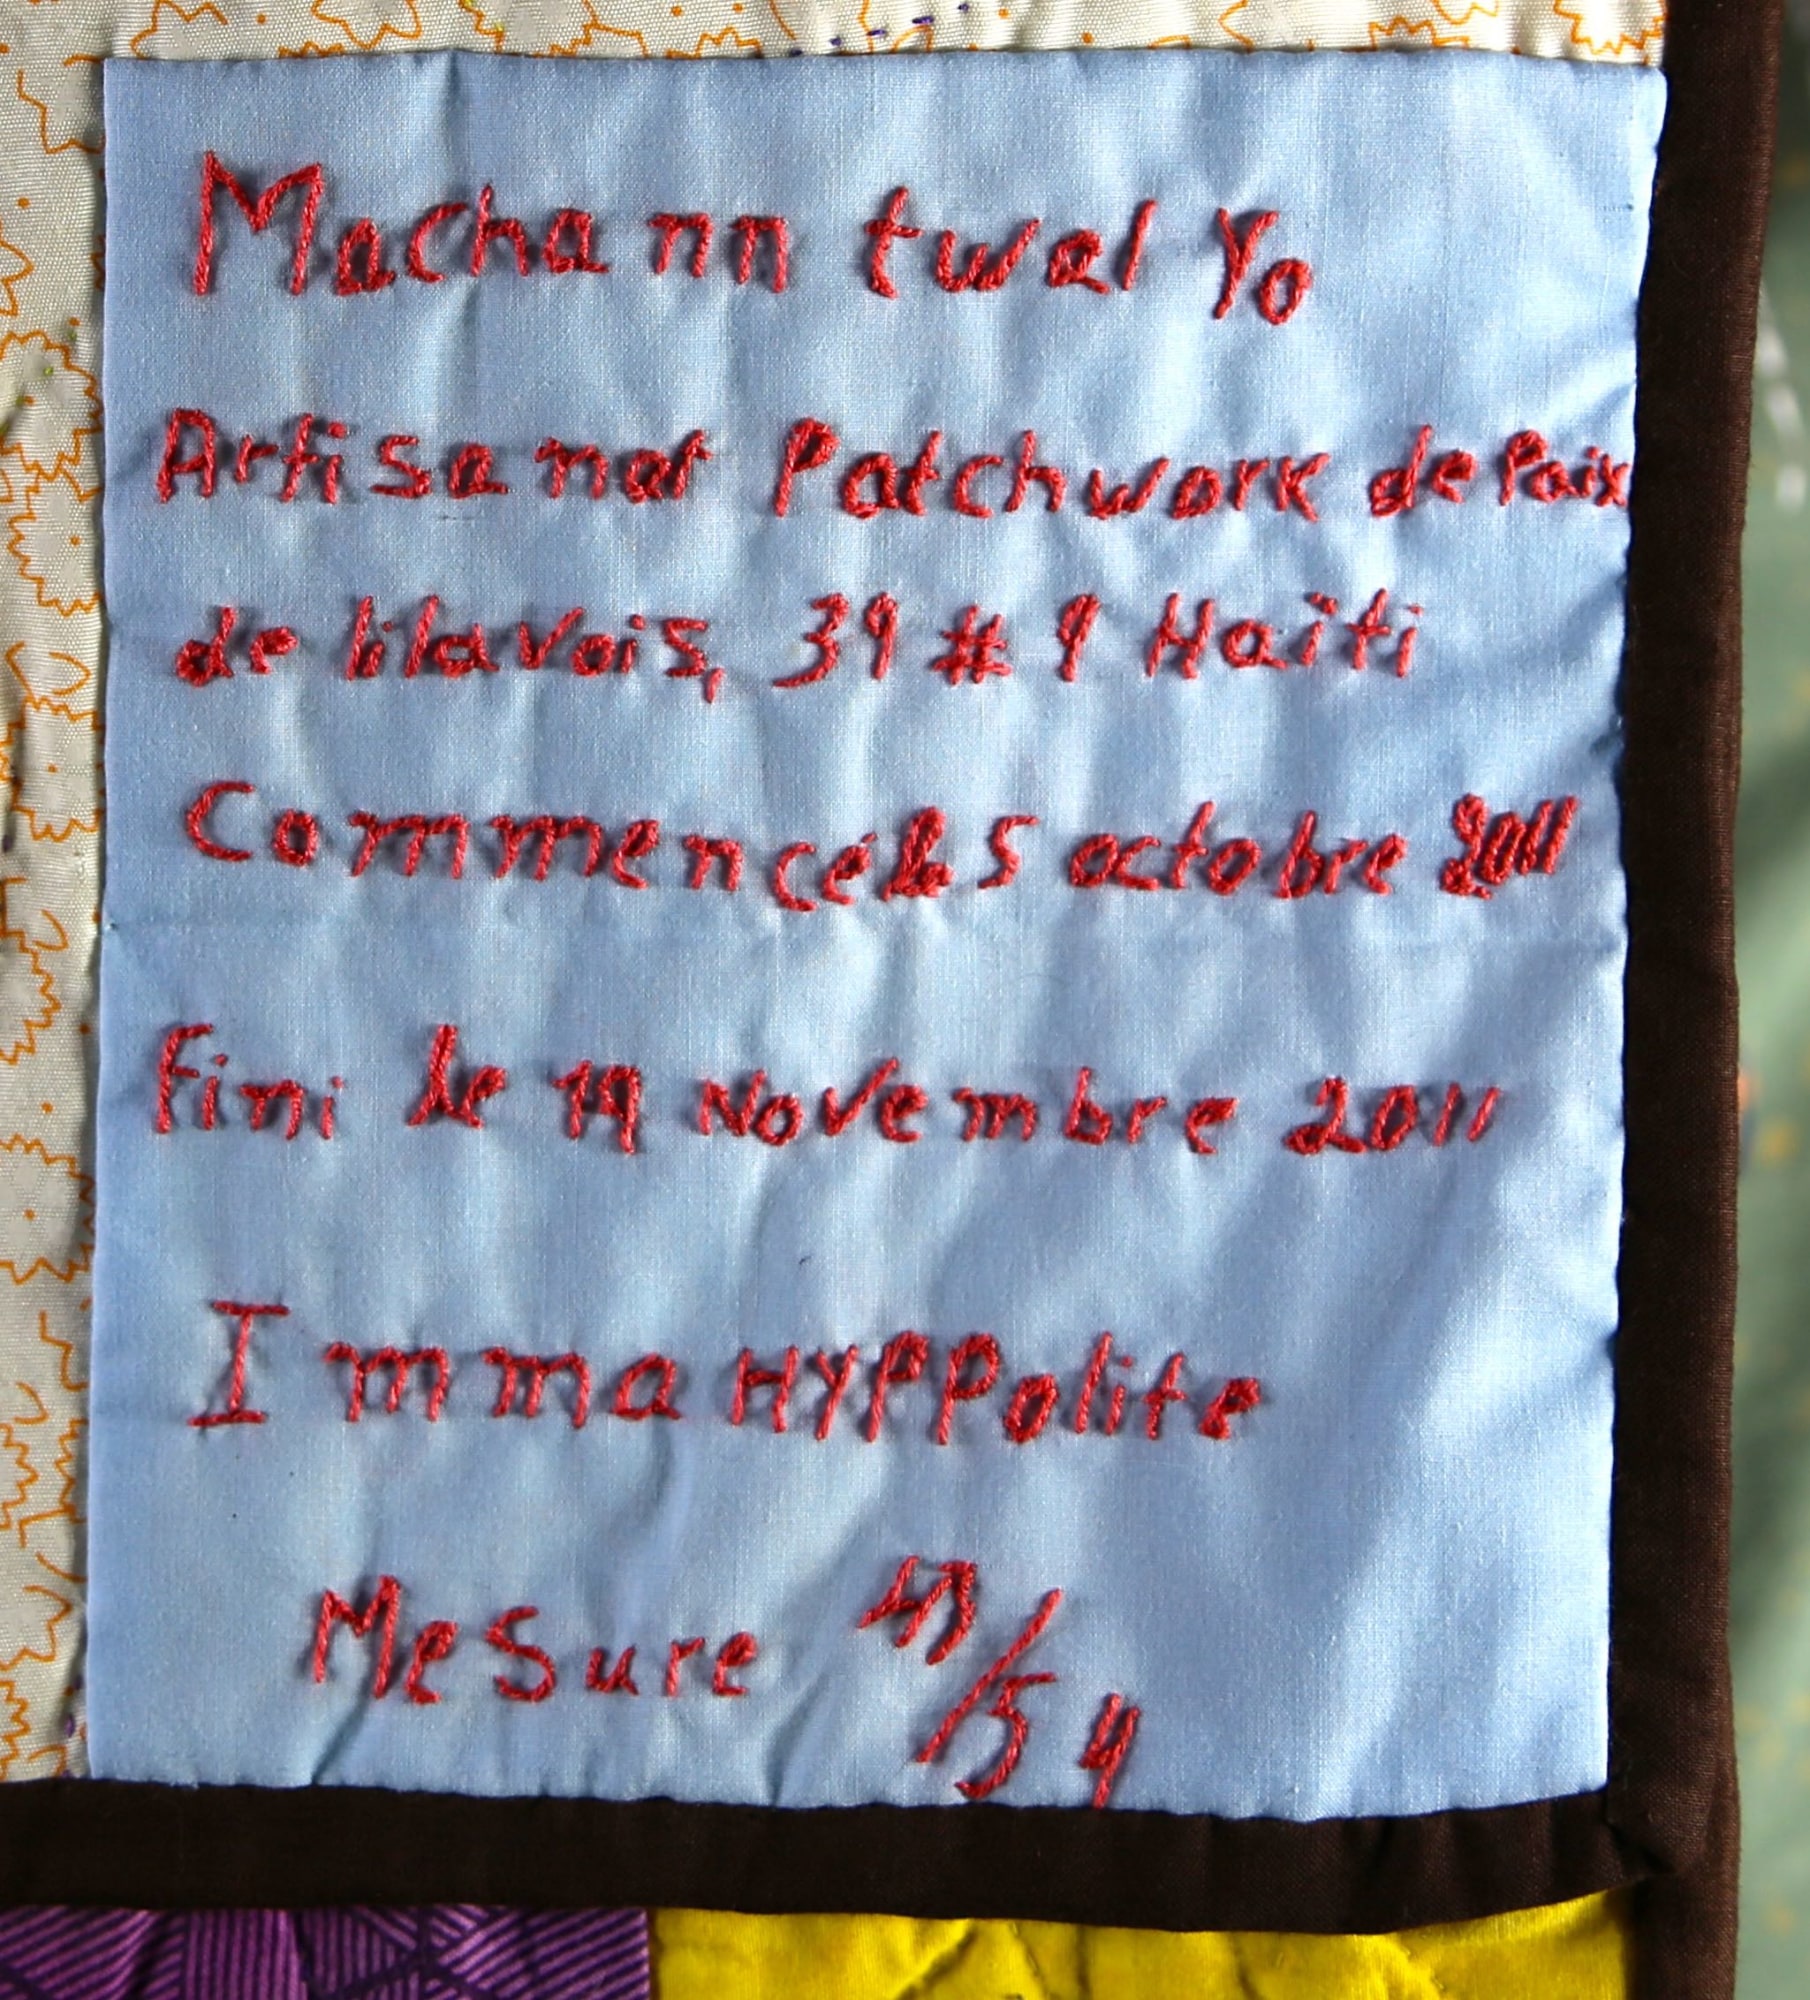 Machann twal Yo
Artisanat Patchwork de Paix
de lilavois, 39 # 9 Haïti
Commencé le 5 octobre 2011
Fini le 19 Novembre 2011
Imma HYPPolite
MeSure 43/54